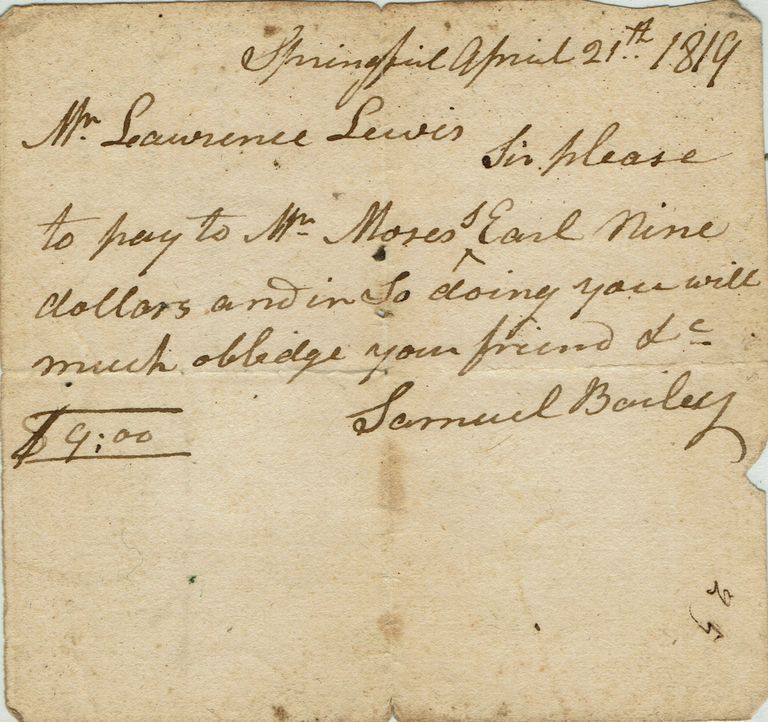 Springfiel April 21th 1819
Mr. Lawrence Lewis Sir please
to pay to Mr Moses S Earl Nine
dollars and in So doing you will
much oblidge your friend &c
$9:00 Samuel Bailey